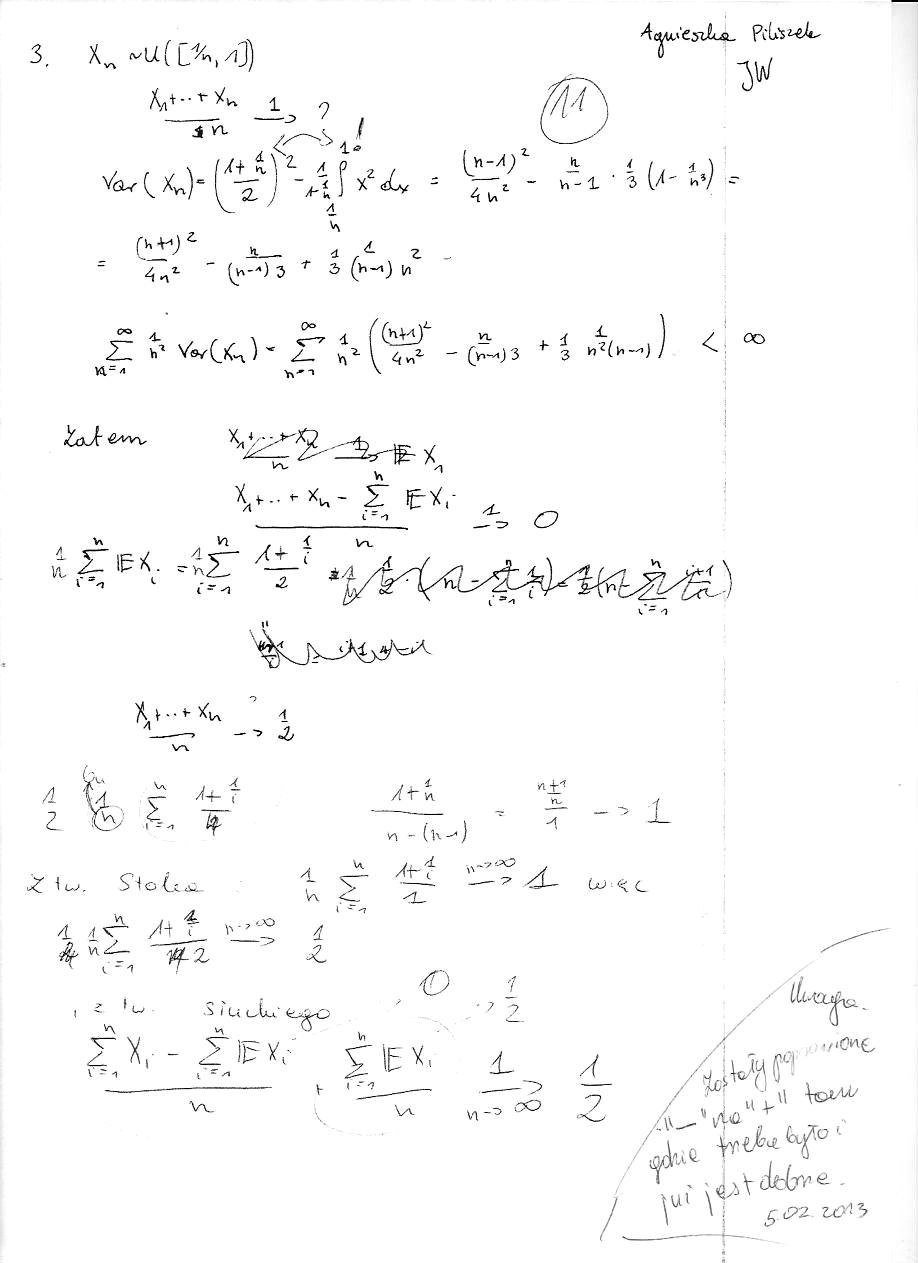 Agnieszka Piliszek
JW
3. X_n ~ U([1/n, 1])
11
(X_1+..+X_n)/n →^1 ?
Var(X_n) = ((1+1/n)/2)^2 - 1/(1-1/n) ∫_{1/n}^{1} x^2 dx = (n-1)^2/4n^2 - n/(n-1) · 1/3 (1 - 1/n^3) =
!
= (n+1)^2/4n^2 - n/((n-1)3) + 1/3 1/((n-1) n^2) -
∑_{n=1}^∞ 1/n^2 Var(X_n) = ∑_{n=1}^∞ 1/n^2 ((n+1)^2/4n^2 - n/((n-1)3) + 1/3 1/(n^2(n-1))) < ∞
Zatem (X_1+..+X_n)/n →^1 𝔼X_1
(X_1+..+X_n - ∑_{i=1}^n 𝔼X_i)/n →^1 0
1/n ∑_{i=1}^n 𝔼X_i = 1/n ∑_{i=1}^n (1+1/i)/2
(X_1+..+X_n)/n →^? 1/2
1/2 1/n ∑_{i=1}^n (1+1/i)/1 (1+1/n)/(n-(n-1)) = ((n+1)/n)/1 → 1
Z tw. Stolza 1/n ∑_{i=1}^n (1+1/i)/1 →^{n→∞} 1 więc
1/n ∑_{i=1}^n (1+1/i)/2 →^{n→∞} 1/2
i z tw. Słuckiego 0 → 1/2
(∑_{i=1}^n X_i - ∑_{i=1}^n 𝔼X_i)/n + (∑_{i=1}^n 𝔼X_i)/n →^1_{n→∞} 1/2
Uwaga.
Zostały poprawione
"-" na "+" tam
gdzie trzeba było i
już jest dobrze.
5.02.2013